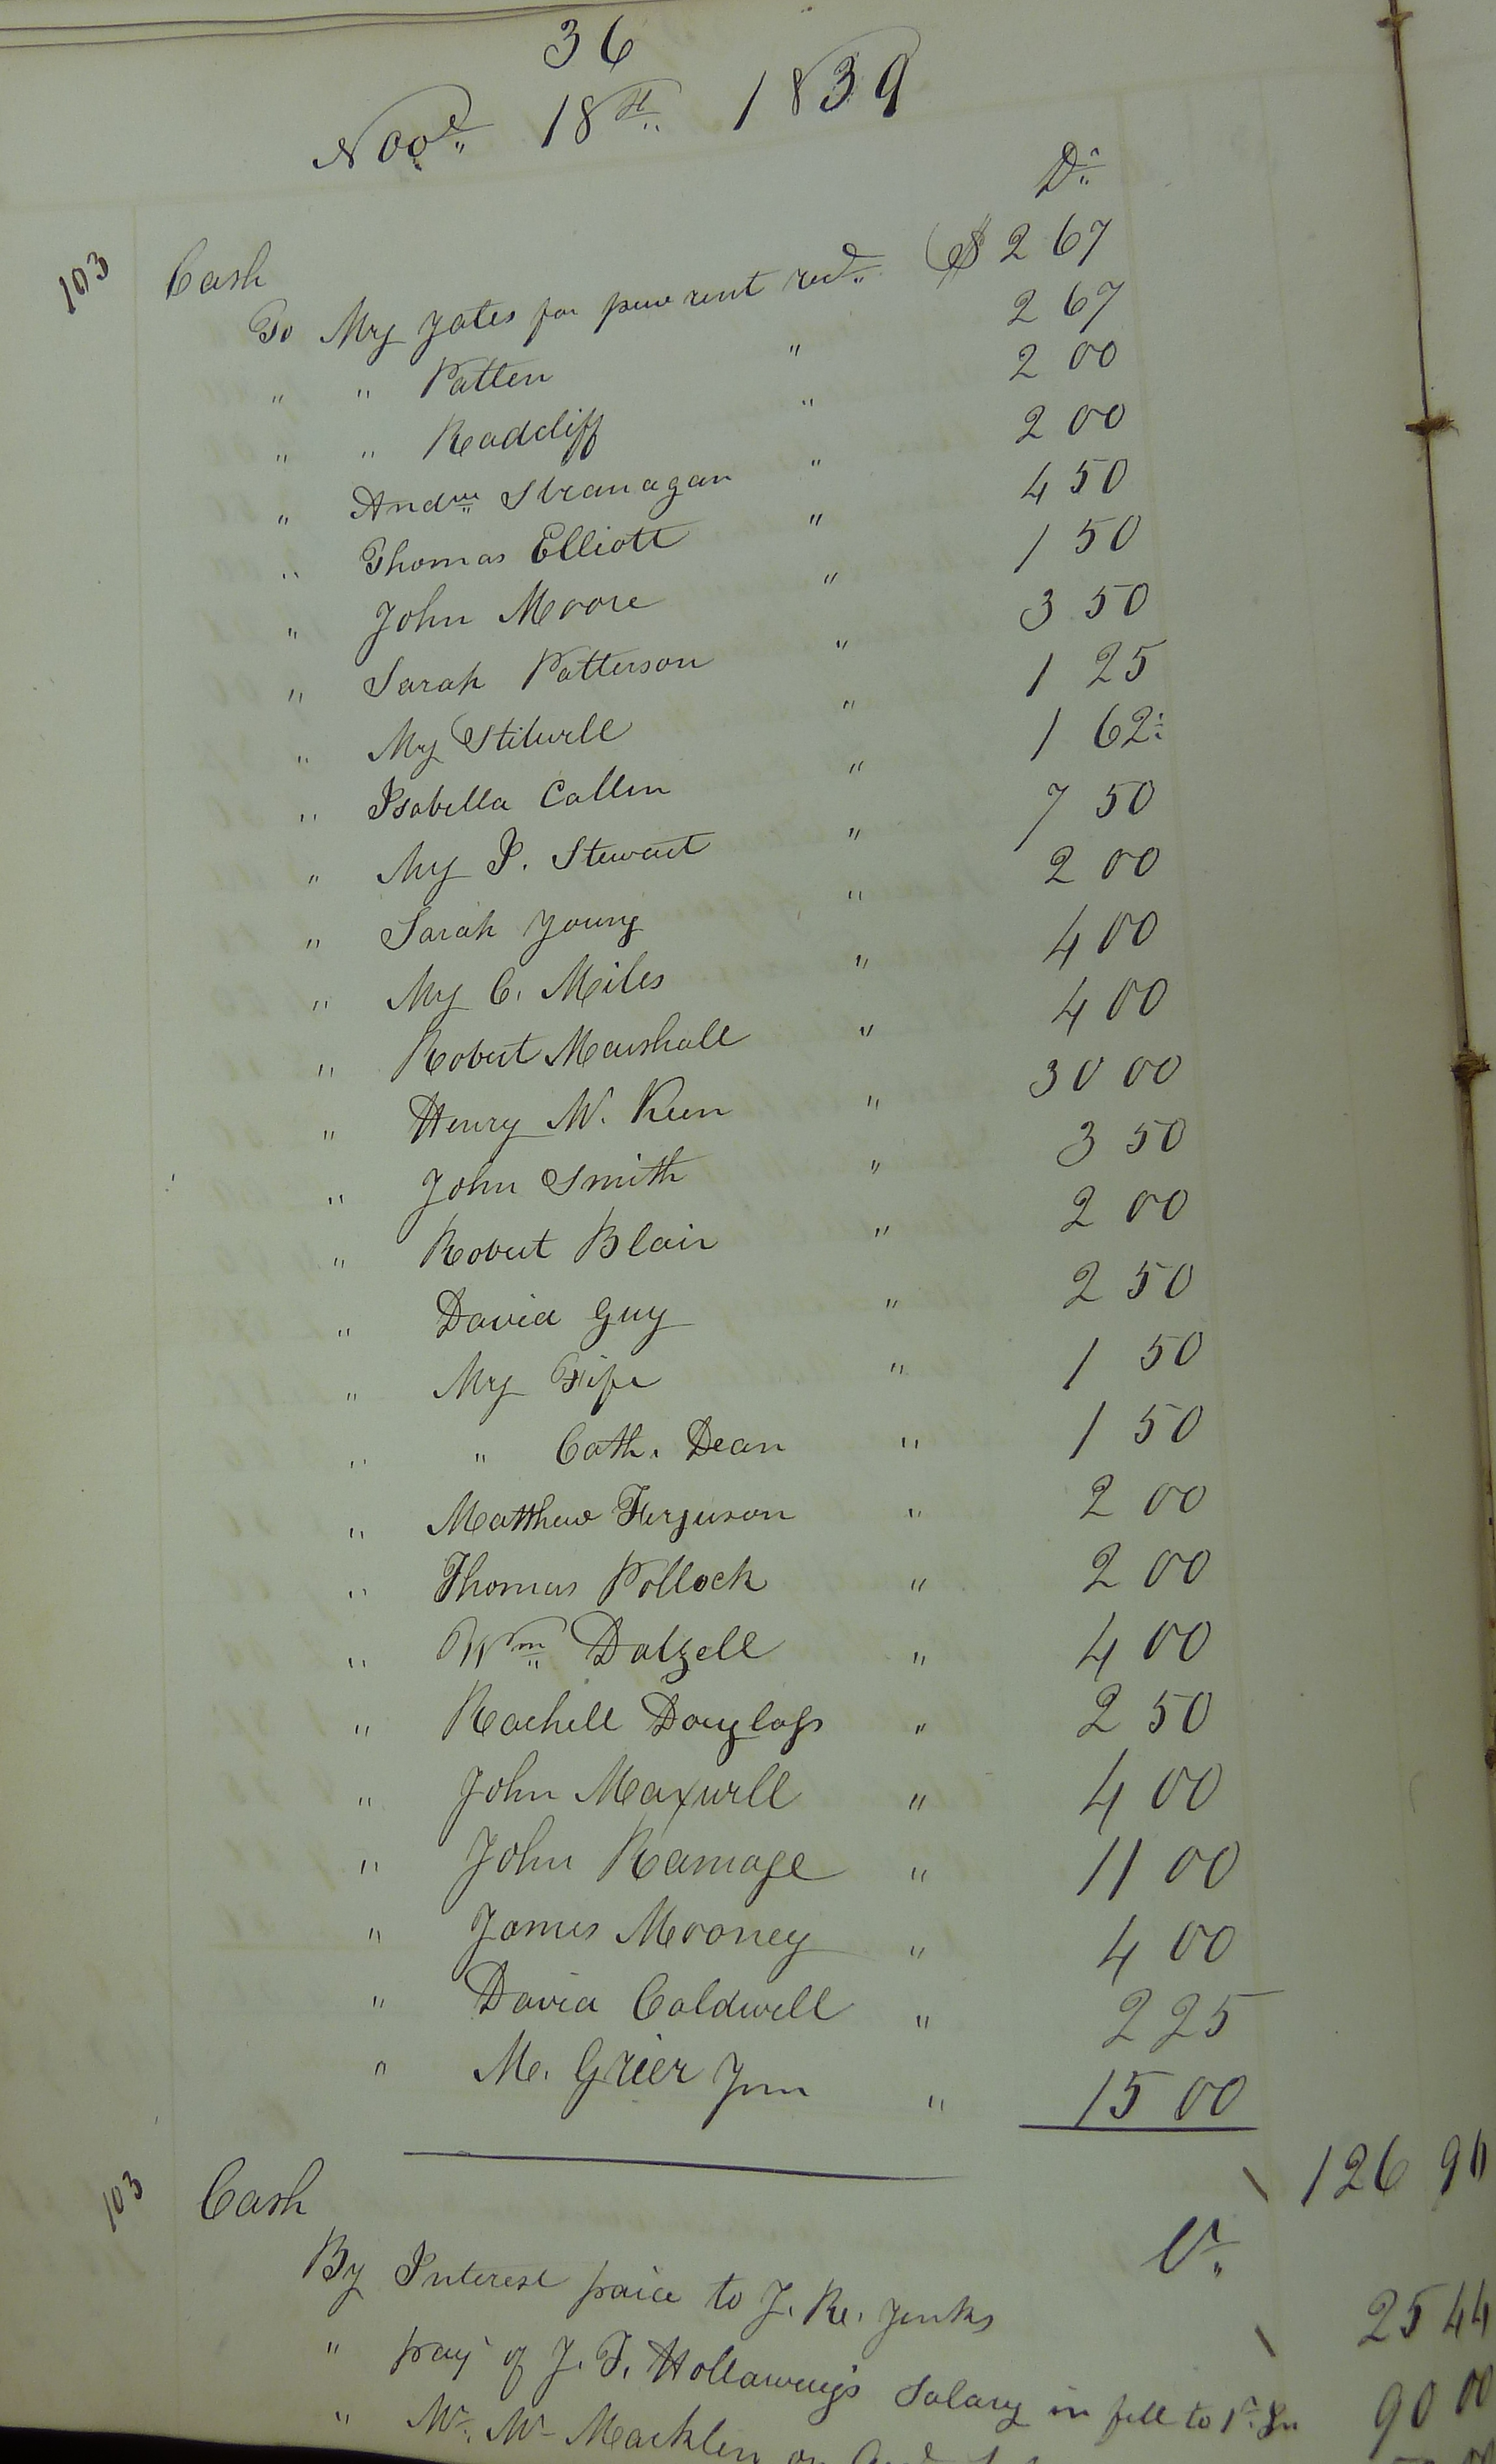 36
Nov.r 18th 1839
Dr
103 Cash
To Mrs Yates for pew rent recd $ 2 67
" " Patten " 2 67
" " Readcliff " 2 00
" Andw Stranagan " 2 00
" Thomas Elliott " 4 50
" John Moore " 1 50
" Sarah Patterson " 3 50
" Mrs Stilwell " 1 25
" Isabella Callen " 1 62½
" Mrs I. Stewart " 7 50
" Sarah Young " 2 00
" Mrs C. Miles " 4 00
" Robert Marshall " 4 00
" Henry W. Keen " 30 00
" John Smith " 3 50
" Robert Blair " 2 00
" David Guy " 2 50
" Mrs Fife " 1 50
" " Cath. Dean " 1 50
" Matthew Ferguson " 2 00
" Thomas Pollock " 2 00
" Wm Dalzell " 4 00
" Rachell Douglass " 2 50
" John Maxwell " 4 00
" John Ramage " 11 00
" James Mooney " 4 00
" David Caldwell " 2 25
" M. Grier Jun " 15 00
126 96
103 Cash
Cr
By Interest paid to J. R. Jenks 25 44
" pay of J. F. Hollaway's Salary in full to 1st 90 00
" Mr. Wm Macklin on